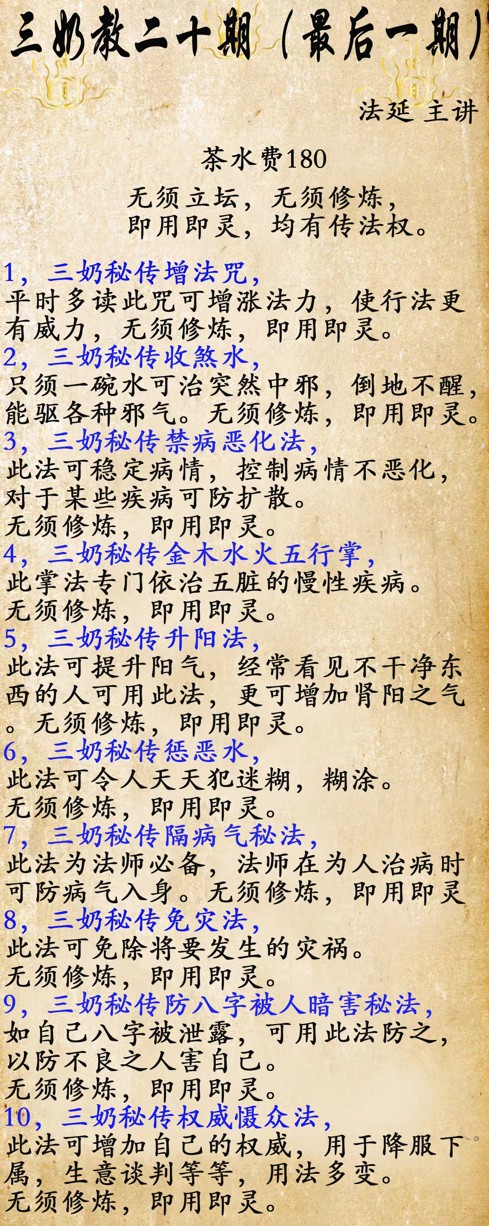 三奶教二十期（最后一期）
法延 主讲
茶水费180
无须立坛，无须修炼，
即用即灵，均有传法权。
1，三奶秘传增法咒，
平时多读此咒可增涨法力，使行法更
有威力，无须修炼，即用即灵。
2，三奶秘传收煞水，
只须一碗水可治突然中邪，倒地不醒，
能驱各种邪气。无须修炼，即用即灵。
3，三奶秘传禁病恶化法，
此法可稳定病情，控制病情不恶化，
对于某些疾病可防扩散。
无须修炼，即用即灵。
4，三奶秘传金木水火五行掌，
此掌法专门依治五脏的慢性疾病。
无须修炼，即用即灵。
5，三奶秘传升阳法，
此法可提升阳气，经常看见不干净东
西的人可用此法，更可增加肾阳之气
。无须修炼，即用即灵。
6，三奶秘传惩恶水，
此法可令人天天犯迷糊，糊涂。
无须修炼，即用即灵。
7，三奶秘传隔病气秘法，
此法为法师必备，法师在为人治病时
可防病气入身。无须修炼，即用即灵
8，三奶秘传免灾法，
此法可免除将要发生的灾祸。
无须修炼，即用即灵。
9，三奶秘传防八字被人暗害秘法，
如自己八字被泄露，可用此法防之，
以防不良之人害自己。
无须修炼，即用即灵。
10，三奶秘传权威慑众法，
此法可增加自己的权威，用于降服下
属，生意谈判等等，用法多变。
无须修炼，即用即灵。